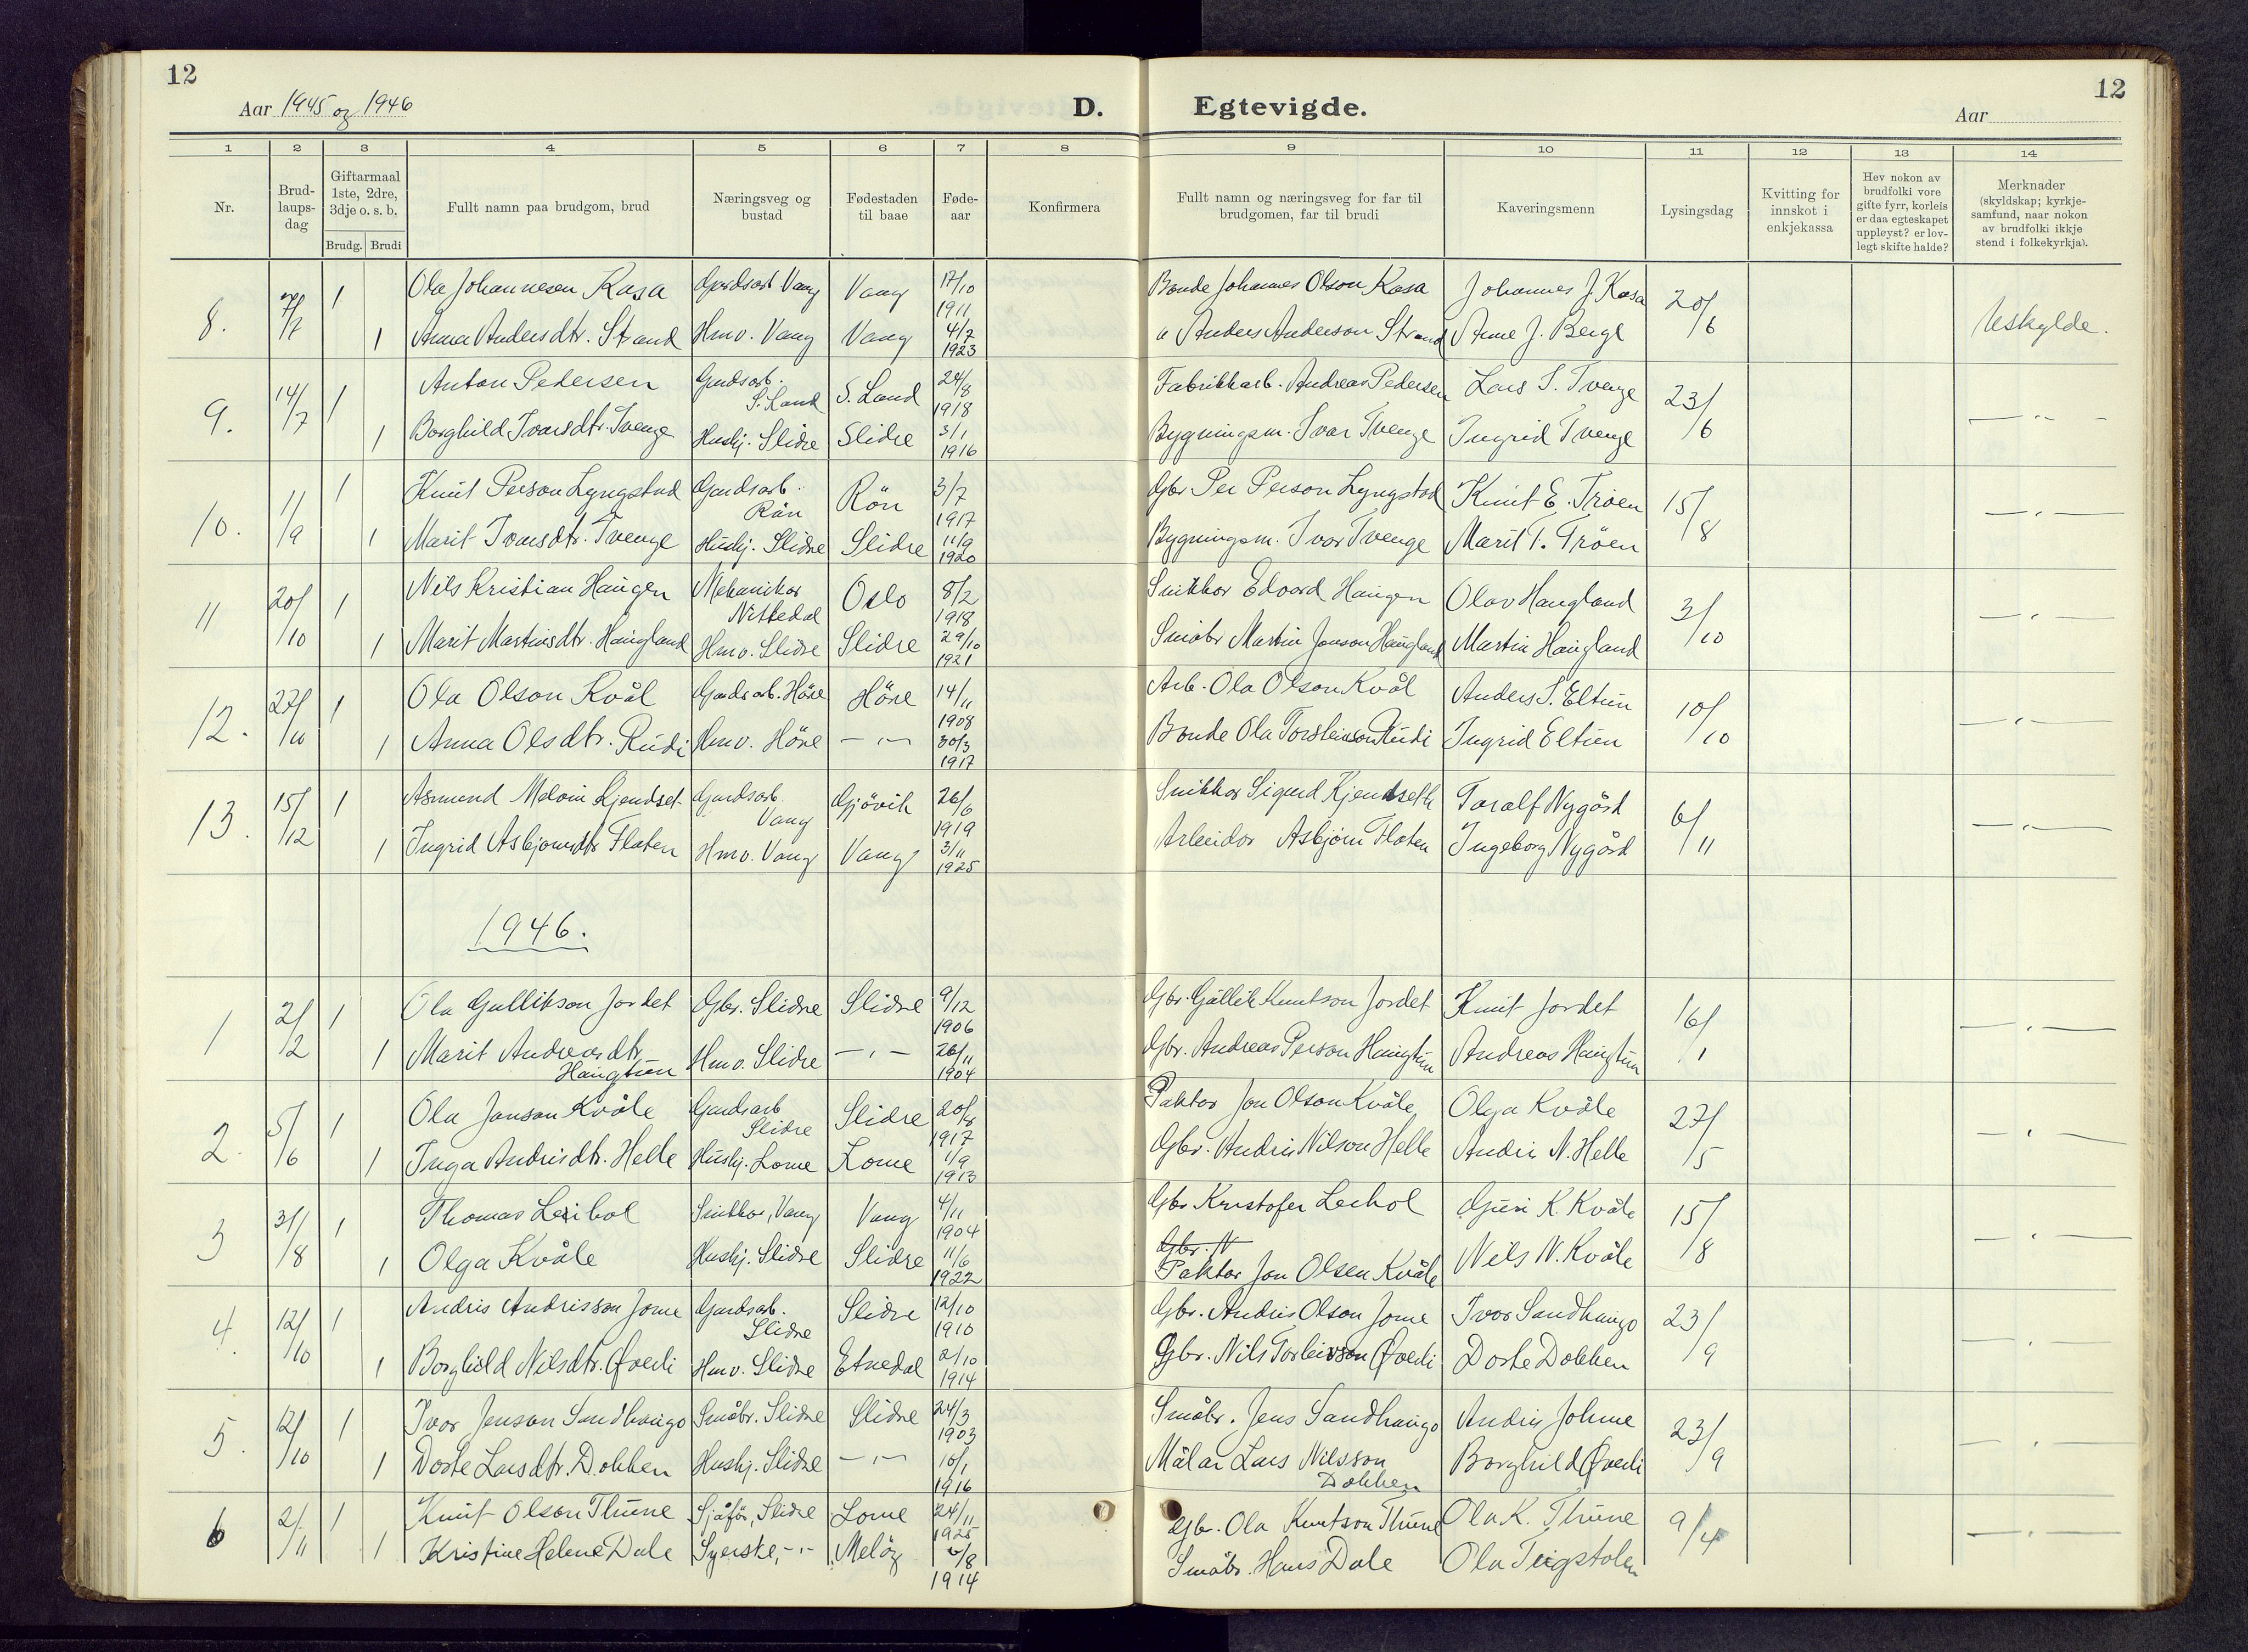 12
Aar 1945 og 1946
D.
Egtevigde.
Aar
12
1 2 3 4 5 6 7 8 9 10 11 12 13 14
Nr.
Brud-
laups-
dag
Giftarmaal
1ste, 2dre,
3dje o. s. b.
Brudg. Brudi
Fullt namn paa brudgom, brud
Næringsveg og
bustad
Fødestaden
til baae
Føde-
aar
Konfirmera
Fullt namn og næringsveg for far til
brudgomen, far til brudi
Kaveringsmenn
Lysingsdag
Kvitting for
innskot i
enkjekassa
Hev nokon av
brudfolki vore
gifte fyrr, korleis
er daa egteskapet
uppløyst? er lov-
legt skifte halde?
Merknader
(skyldskap; kyrkje-
samfund, naar nokon
av brudfolki ikkje
stend i folkekyrkja).
8. /7 1 Ola Johannesen Kasa Gardsarb Vang Vang 17/10 1911 Bonde Johannes Olson Kasa Johannes J. Kasa 20/6 Uskylde.
1 Anna Andersdtr. Strand Hmv. Vang Vang 4/7 1923 " Anders Anderson Strand Arne J. Berge
9. 14/7 1 Anton Pedersen Gardsarb. S. Land S. Land 24/8 1918 Fabrikkarb. Andreas Pedersen Lars I. Tvenge 23/6 — " —
1 Borghild Ivarsdtr. Tvenge Hushj. Slidre Slidre 3/1 1916 Bygningsm. Ivar Tvenge Ingrid Tvenge
10. 11/9 1 Knut Person Lyngstad Gardsarb. Røn Røn 3/7 1917 Gbr. Per Person Lyngstad Knut E. Trøen 15/8 — " —
1 Marit Ivarsdtr. Tvenge Hushj. Slidre Slidre 11/9 1920 Bygningsm. Ivar Tvenge Marit T. Trøen
11 20/10 1 Nils Kristian Haugen Mekanikar Nittedal Oslo 8/2 1918 Snikkar Edvard Haugen Olav Haugland 3/10 — " —
1 Marit Martinsdtr. Haugland Hmv. Slidre Slidre 29/10 1921 Småbr Martin Jonson Haugland Martin Haugland
12. 27/10 1 Ola Olson Kvål Gardsarb. Høre Høre 14/11 1908 Arb. Ola Olson Kvål Anders S. Eltun 10/10 — " —
1 Anna Olsdtr. Rudi Hmv. Høre — " — 30/3 1917 Bonde Ola Torsteinson Rudi Ingrid Eltun
13. 15/12 1 Asmund Melvin Kjendset Gardsarb. Vang Gjövik 26/6 1919 Snikkar Sigurd Kjendseth Toralf Nygård 6/11 — " —
1 Ingrid Asbjørnsdtr Fløten Hmv. Vang Vang 3/11 1925 Arbeidar Asbjørn Fløten Ingeborg Nygård
1946.
1 2/2 1 Ola Gullikson Jordet Gbr. Slidre Slidre 9/12 1906 Gbr. Gullik Knutson Jordet Knut Jordet 16/1 — " —
1 Marit Andreasdtr. Haugtun Hmv. Slidre — " — 26/11 1904 Gbr. Andreas Person Haugtun Andreas Haugtun
2. 5/6 1 Ola Jonson Kvåle Gardsarb Slidre Slidre 20/8 1917 Paktar Jon Olson Kvåle Olga Kvåle 27/5 — " —
1 Inga Andrisdtr. Helle Hushj. Lome Lome 1/9 1913 Gbr. Andris Nilson Helle Andris N. Helle
3 31/8 1 Thomas Leihol Snikkar, Vang Vang 4/11 1904 Gbr Kristofer Leehol Guri K. Kvåle 15/8 — " —
Gbr. N
1 Olga Kvåle Hushj. Slidre Slidre 11/6 1922 Paktar Jon Olsen Kvåle Nils N. Kvåle
4. 12/10 1 Andris Andrisson Jome Gardsarb. Slidre Slidre 12/10 1910 Gbr. Andris Olson Jome Ivar Sandhaugo 23/9 — " —
1 Borghild Nilsdtr. Øverli Hmv. Slidre Etnedal 2/10 1914 Gbr. Nils Torleivson Øverli Dorte Dokken
5. 12/10 1 Ivar Jenson Sandhaugo Småbr. Slidre Slidre 24/3 1903 Småbr. Jens Sandhaugo Andris Johme 23/9 — " —
1 Dorte Larsdtr. Dokken Hushj. Slidre — " — 10/1 1916 Målar Lars Nilsson Dokken Borghild Øverli
6 2/11 1 Knut Olson Thune Sjåfør, Slidre Lome 24/11 1925 Gbr. Ola Knutson Thune Ola K. Thune 9/4 — " —
1 Kristine Helene Dale Syerske, — " — Meløy /8 1914 Småbr. Hans Dale Ola Teigstolen